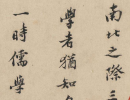 南北之際三
學者猶知
一時儒學